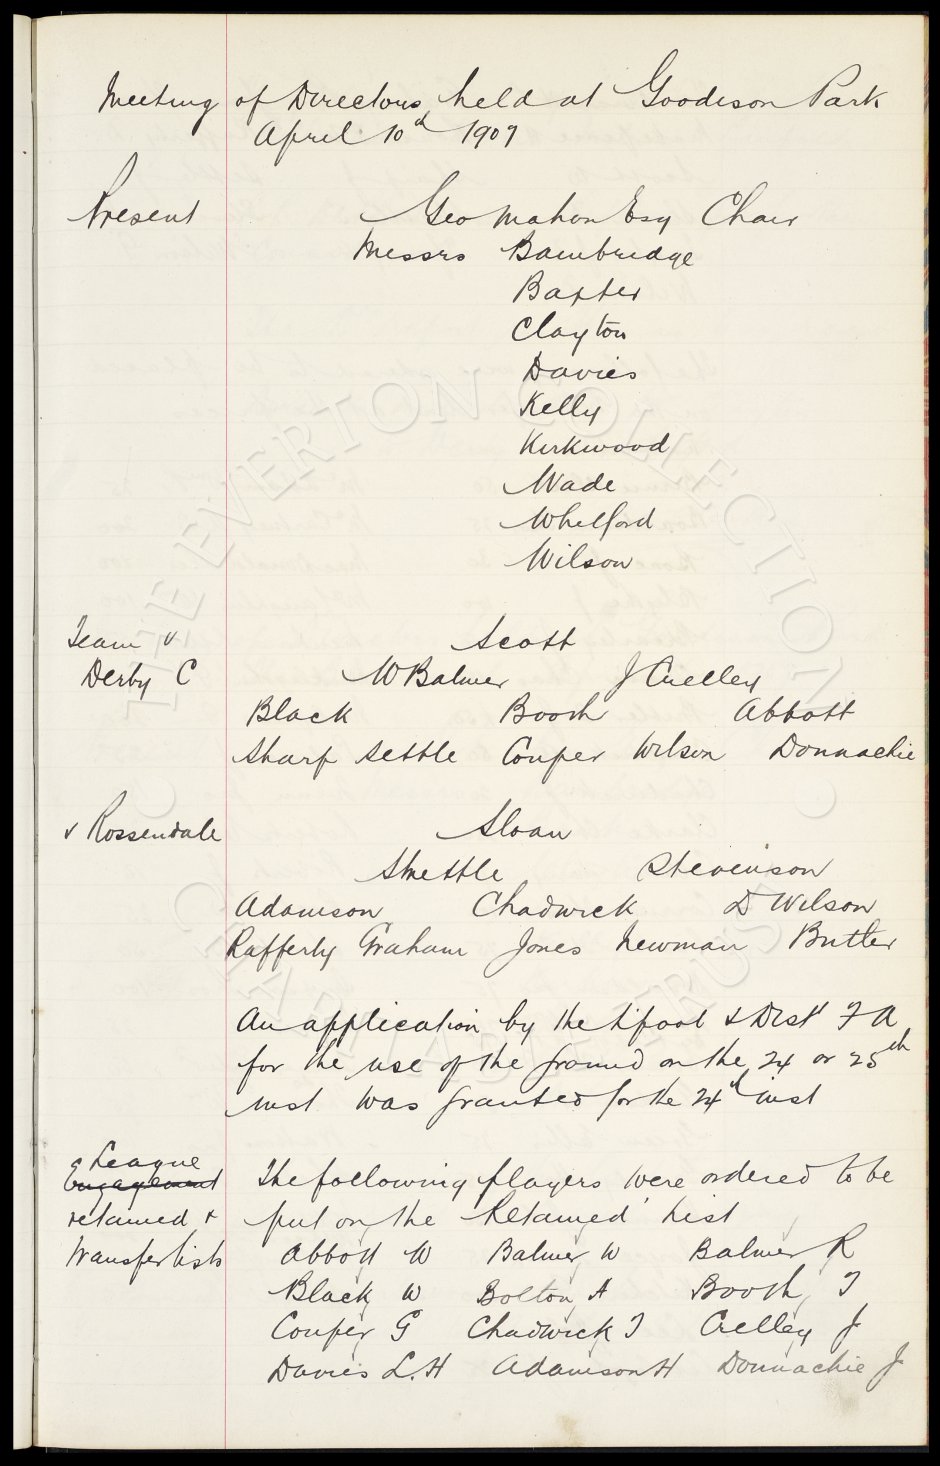 Meeting of Directors held at Goodison Park
April 10th 1907
Present Geo Mahon Esq Chair
Messrs Bainbridge
Baxter
Clayton
Davies
Kelly
Kirkwood
Wade
Whitford
Wilson
Team v Scott
Derby C W Balmer J Crelley
Black Booth Abbott
Sharp Settle Couper Wilson Donnachie
v Rossendale Sloan
Strettle Stevenson
Adamson Chadwick D Wilson
Rafferty Graham Jones Newman Butler
An application by the L'pool & Dist F A
for the use of the ground on the 24 or 25th
inst was granted for the 24th inst
League
Engagement The following players were ordered to be
retained & put on the 'Retained' List
transfer lists Abbott W Balmer W Balmer R
Black W Bolton A Booth T
Couper G Chadwick T Crelley J
Davies L.H Adamson H Donnachie J
THE EVERTON COLLECTION
CHARITABLE TRUST